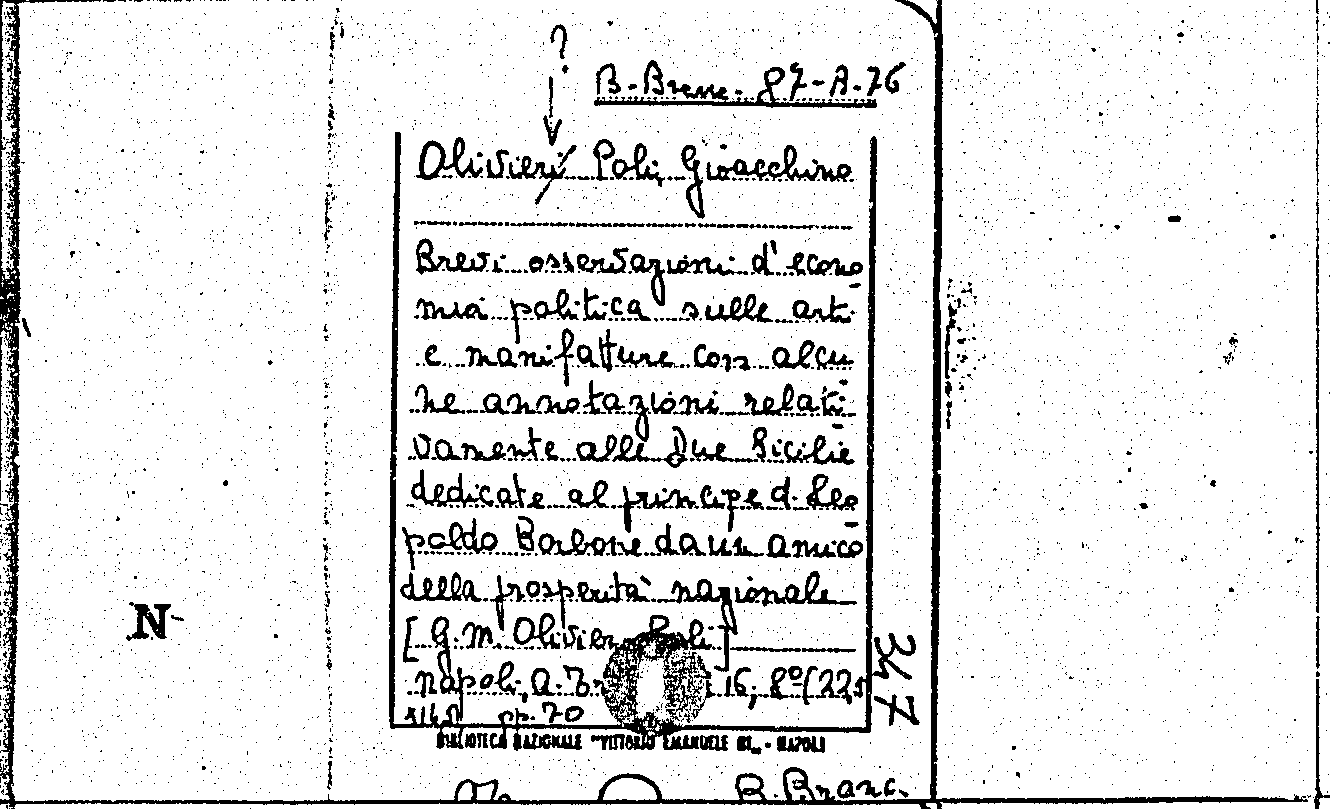 ?
B. Branc. 87-A.76
Olivieri Poli, Gioacchino
Brevi osservazioni d'econo
mia politica sulle arti
e manifatture con alcu
ne annotazioni relati
vamente alle Due Sicilie
dedicate al principe d. Leo
poldo Borbone da un amico
della prosperità nazionale
[G.M. Olivier Poli]
Napoli, A. 16, 8º (22,5
pp. 70
347
N-
BIBLIOTECA NAZIONALE "VITTORIO EMANUELE III" - NAPOLI
B. Branc.